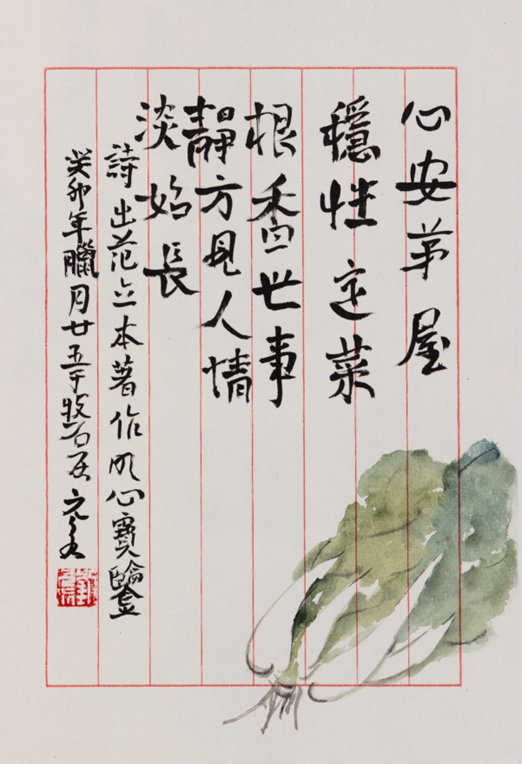 心安茅屋
穩性定菜
根香世事
靜方見人情
淡始長
詩出范立本著作明心寶鑒
癸卯年臘月廿五于牧石居